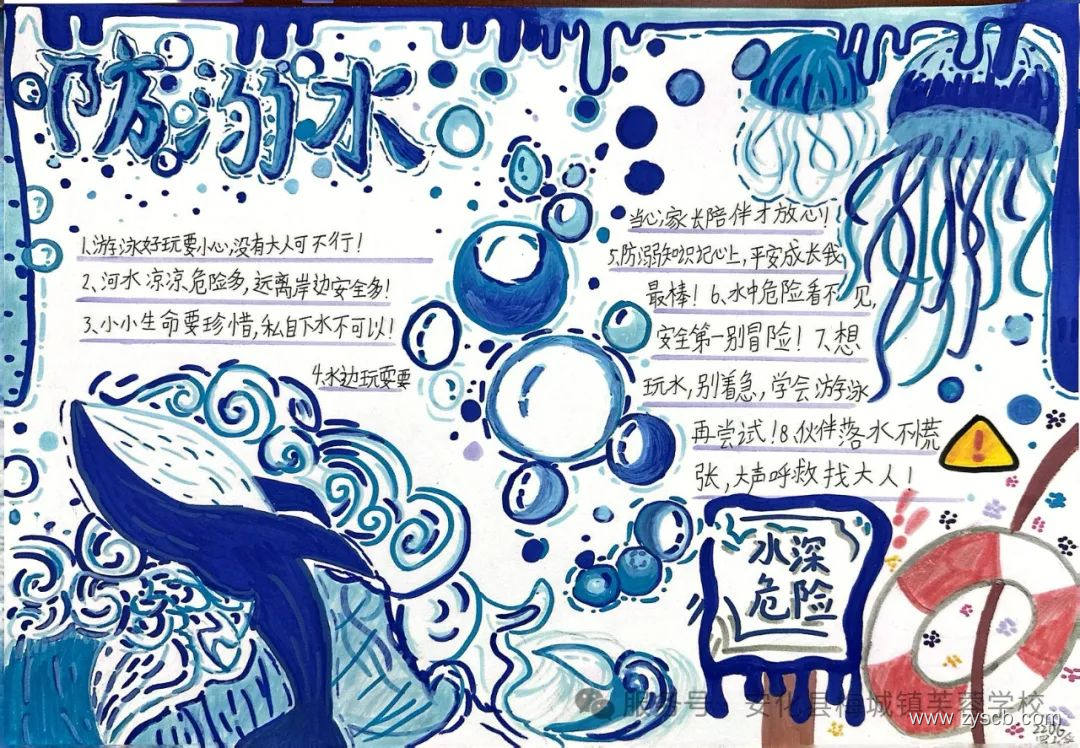 防溺水
1.游泳好玩要小心,没有大人可不行!
2.河水凉凉危险多,远离岸边安全多!
3.小小生命要珍惜,私自下水不可以!
4.水边玩耍要
当心,家长陪伴才放心!
5.防溺知识记心上,平安成长我
最棒!6.水中危险看不见,
安全第一别冒险!7.想
玩水,别着急,学会游泳
再尝试!8.伙伴落水不慌
张,大声呼救找大人!
水深
危险
服务号 安化县梅城镇芙蓉学校
www.zyscb.com